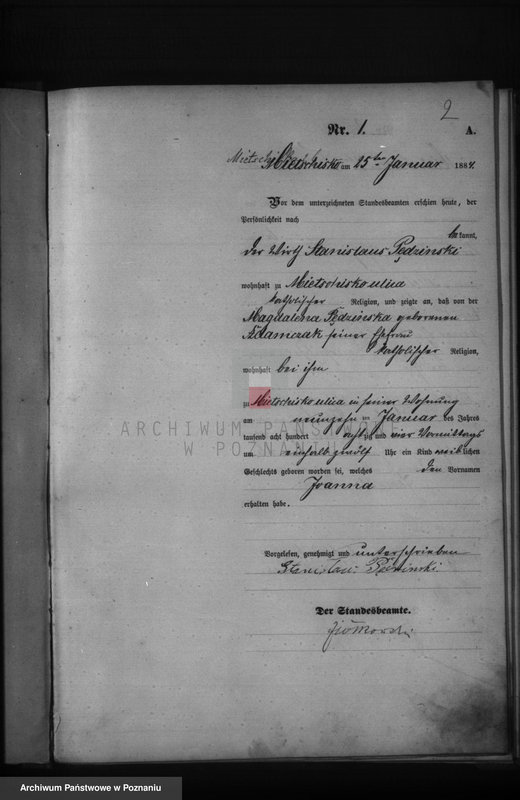 2
Nr. 1.
A.
Mietschisko am 25ten Januar 1884.
Vor dem unterzeichneten Standesbeamten erschien heute, der
Persönlichkeit nach
bekannt,
der Wirth Stanislaus Pędzinski
wohnhaft zu Mietschisko ulica
katholischer Religion, und zeigte an, daß von der
Magdalena Pędzinska geborenen
Adamczak seiner Ehefrau
katholischer Religion,
wohnhaft bei ihm
zu Mietschisko ulica in seiner Wohnung
am neunzehn ten Januar des Jahres
tausend acht hundert achtzig und vier Vormittags
um einhalb zwölf Uhr ein Kind weiblichen
Geschlechts geboren worden sei, welches den Vornamen
Joanna
erhalten habe.
Vorgelesen, genehmigt und unterschrieben
Der Standesbeamte.
ARCHIWUM PAŃSTWOWE
W POZNANIU
Archiwum Państwowe w Poznaniu